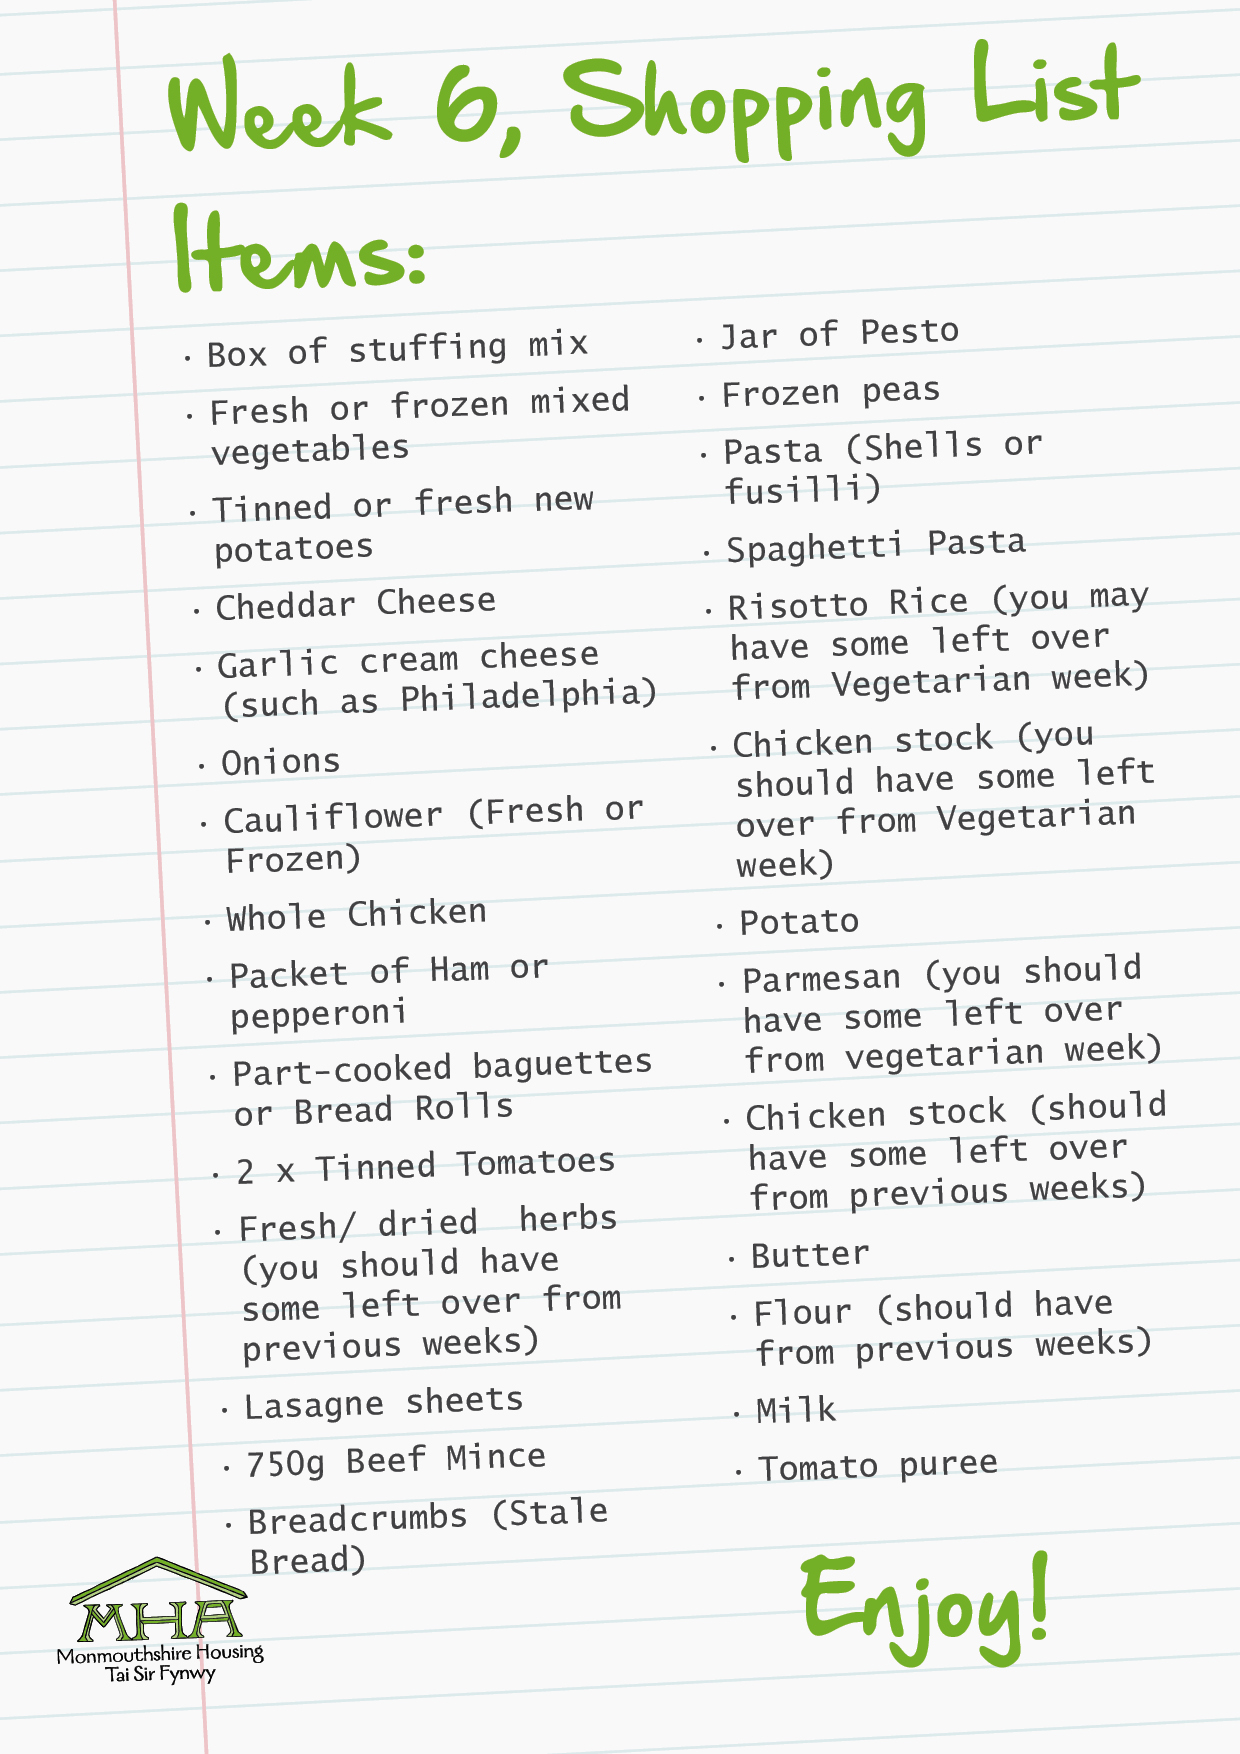 Week 6, Shopping List
Items:
· Box of stuffing mix
· Fresh or frozen mixed
vegetables
· Tinned or fresh new
potatoes
· Cheddar Cheese
· Garlic cream cheese
(such as Philadelphia)
· Onions
· Cauliflower (Fresh or
Frozen)
· Whole Chicken
· Packet of Ham or
pepperoni
· Part-cooked baguettes
or Bread Rolls
· 2 x Tinned Tomatoes
· Fresh/ dried  herbs
(you should have
some left over from
previous weeks)
· Lasagne sheets
· 750g Beef Mince
· Breadcrumbs (Stale
Bread)
· Jar of Pesto
· Frozen peas
· Pasta (Shells or
fusilli)
· Spaghetti Pasta
· Risotto Rice (you may
have some left over
from Vegetarian week)
· Chicken stock (you
should have some left
over from Vegetarian
week)
· Potato
· Parmesan (you should
have some left over
from vegetarian week)
· Chicken stock (should
have some left over
from previous weeks)
· Butter
· Flour (should have
from previous weeks)
· Milk
· Tomato puree
Enjoy!
MHA
Monmouthshire Housing
Tai Sir Fynwy